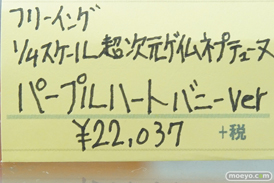 フリーイング
1/4スケール超次元ゲイムネプテューヌ
パープルハートバニーver
¥22,037 +税
moeyo.com